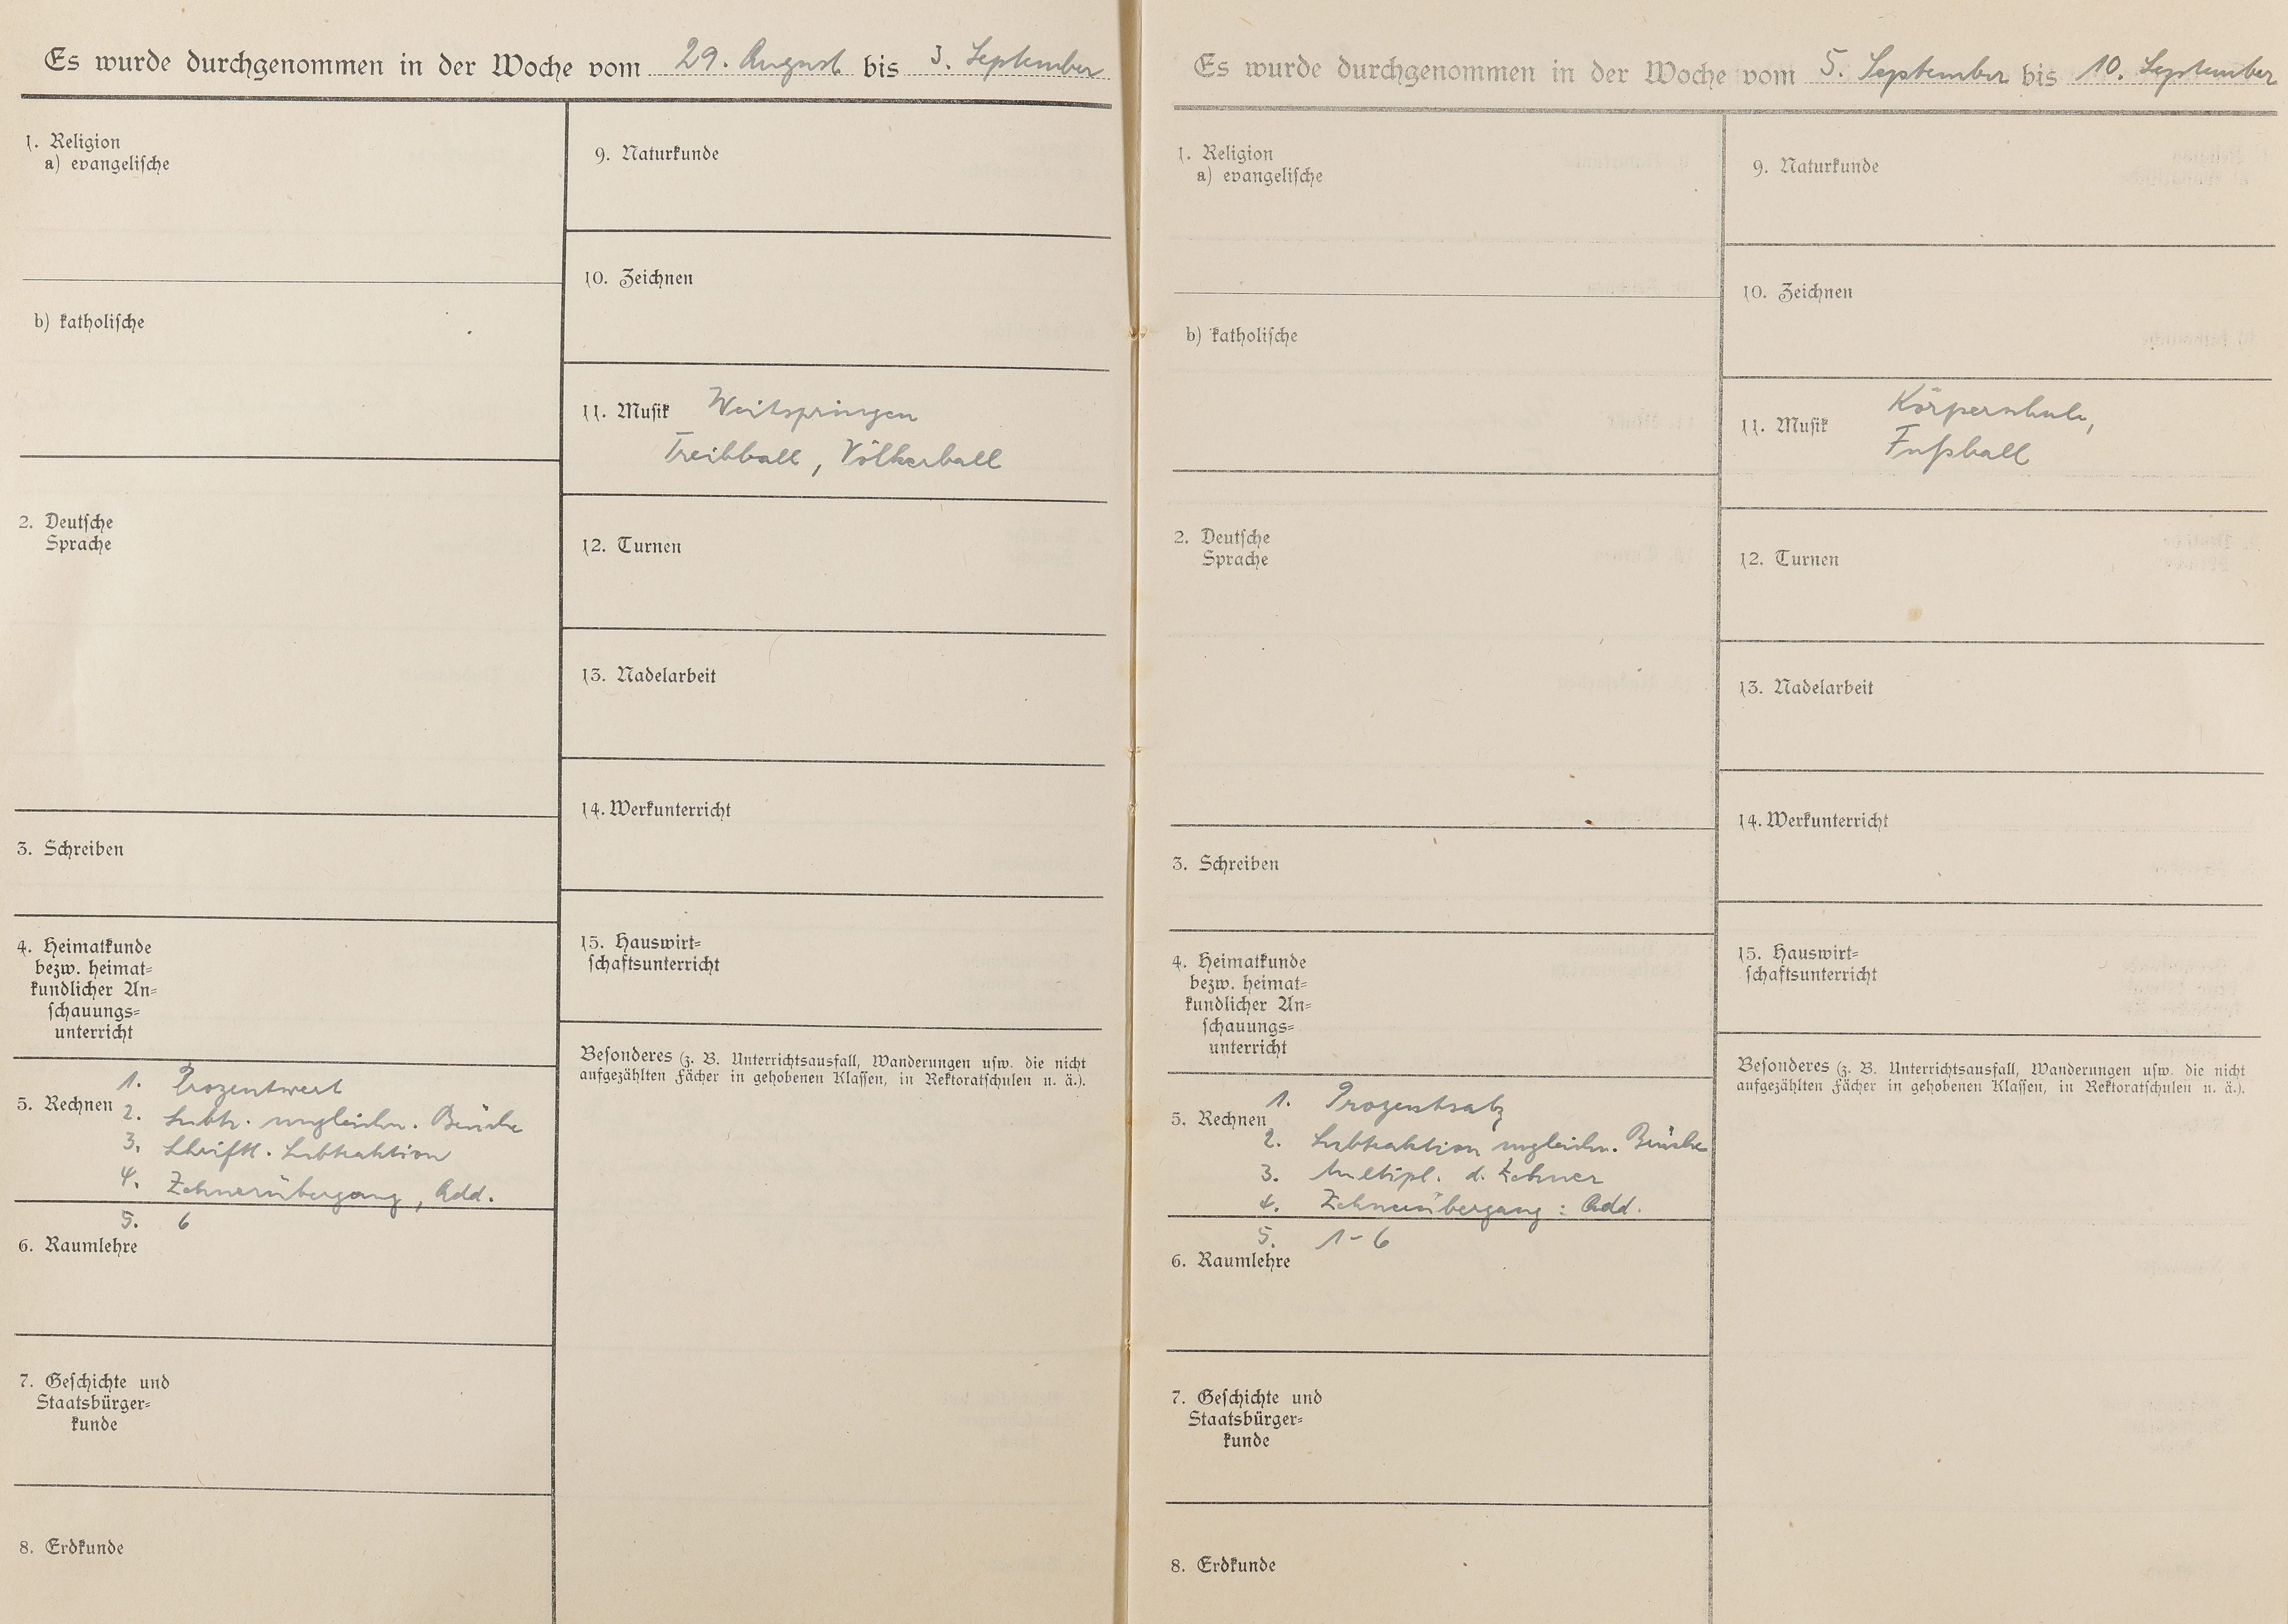 Es wurde durchgenommen in der Woche vom 29. August bis 3. September
1. Religion
a) evangelische
b) katholische
2. Deutsche
Sprache
3. Schreiben
4. Heimatkunde
bezw. heimat=
kundlicher An=
schauungs=
unterricht
5. Rechnen
1. Prozentwert
2. Subtr. ungleichn. Brüche
3. Schriftl. Subtraktion
4. Zehnerübergang, Add.
5. 6
6. Raumlehre
7. Geschichte und
Staatsbürger=
kunde
8. Erdkunde
9. Naturkunde
10. Zeichnen
11. Musik Weitspringen
Treibball, Völkerball
12. Turnen
13. Nadelarbeit
14. Werkunterricht
15. Hauswirt=
schaftsunterricht
Besonderes (z. B. Unterrichtsausfall, Wanderungen usw. die nicht
aufgezählten Fächer in gehobenen Klassen, in Rektoratschulen u. ä.).
Es wurde durchgenommen in der Woche vom 5. September bis 10. September
1. Religion
a) evangelische
b) katholische
2. Deutsche
Sprache
3. Schreiben
4. Heimatkunde
bezw. heimat=
kundlicher An=
schauungs=
unterricht
5. Rechnen
1. Prozentsatz
2. Subtraktion ungleichn. Brüche
3. Multipl. d. Zehner
4. Zehnerübergang: Add.
5. 1-6
6. Raumlehre
7. Geschichte und
Staatsbürger=
kunde
8. Erdkunde
9. Naturkunde
10. Zeichnen
11. Musik Körperschule,
Fußball
12. Turnen
13. Nadelarbeit
14. Werkunterricht
15. Hauswirt=
schaftsunterricht
Besonderes (z. B. Unterrichtsausfall, Wanderungen usw. die nicht
aufgezählten Fächer in gehobenen Klassen, in Rektoratschulen u. ä.).